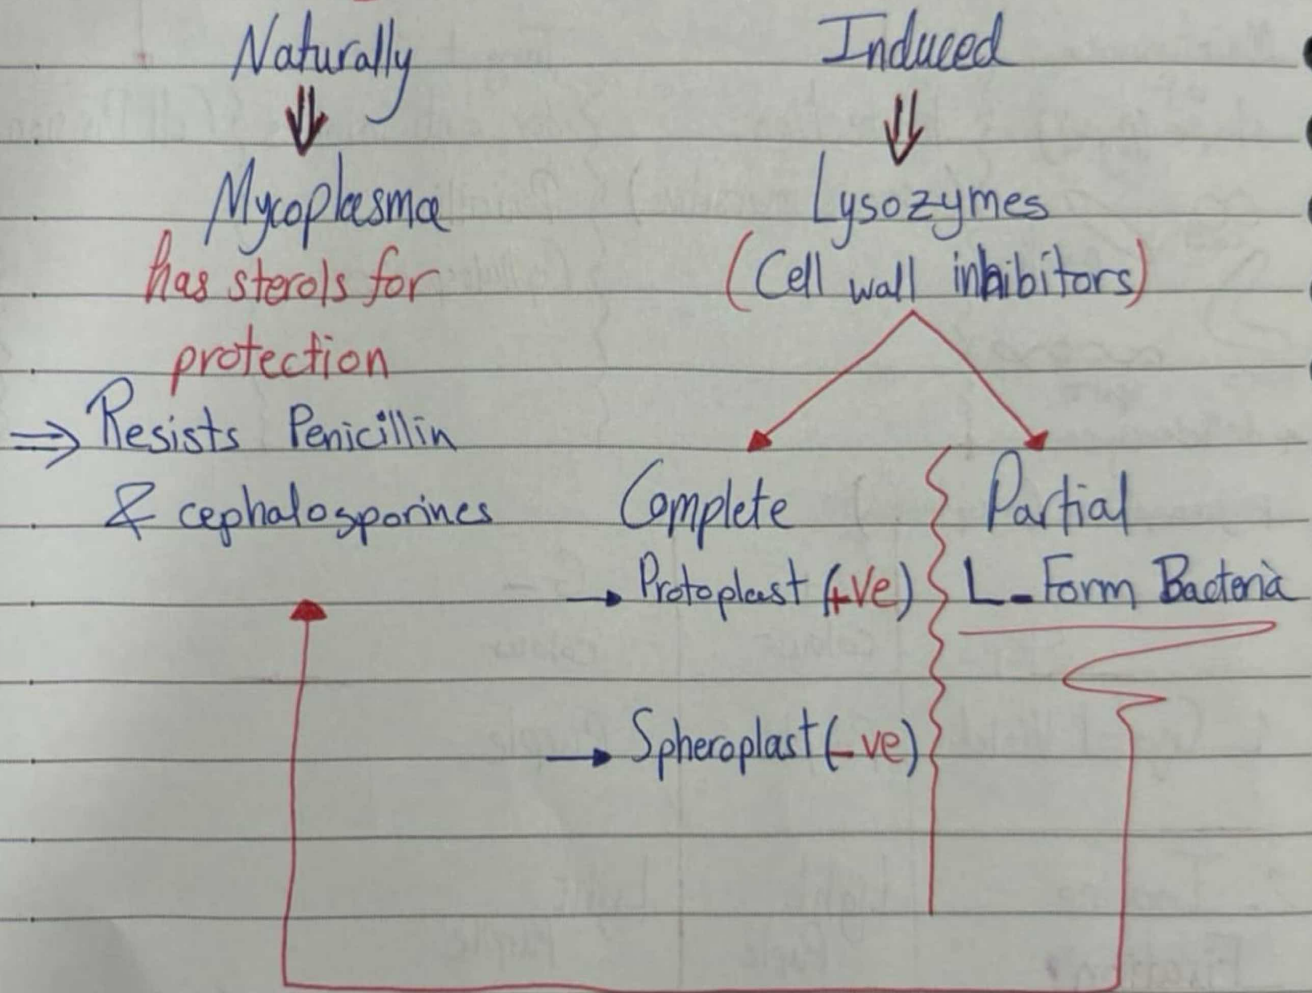 Naturally
Induced
Mycoplasma
has sterols for
protection
⇒ Resists Penicillin
& cephalosporines
Lysozymes
(Cell wall inhibitors)
Complete
→ Protoplast (+ve)
→ Spheroplast (-ve)
Partial
L-Form Bacteria